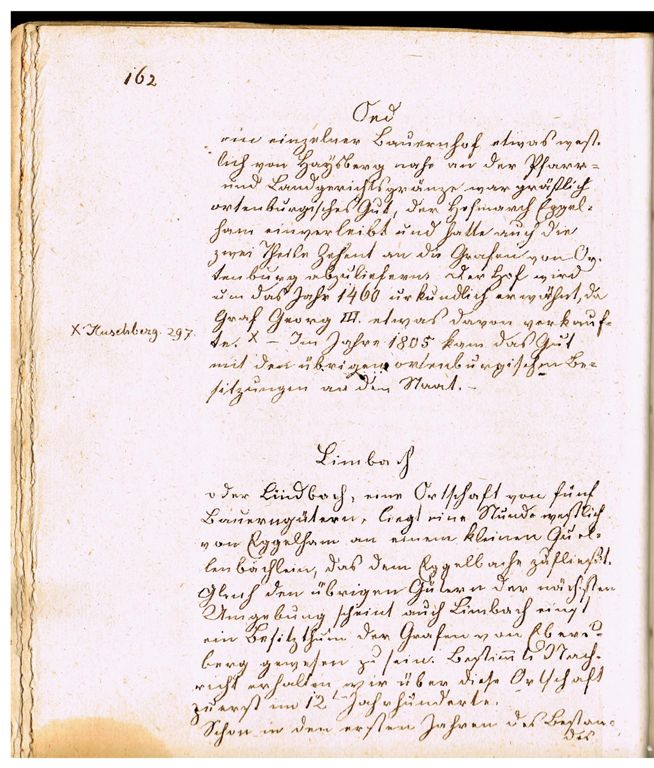 162
Oed
ein einzelner Bauernhof etwas west-
lich von Haysberg nahe an der Pfarr-
und Landgerichtsgränze war gräflich
ortenburgisches Gut, der Hofmarch Eggel-
ham einverleibt und hatte auch die
zwei Theile Zehent an die Grafen von Or-
tenburg abzuliefern. Der Hof wird
um das Jahr 1460 urkundlich erwähnt, da
Graf Georg III. etwas davon verkauf-
X Huschberg. 297.
te. X – Im Jahre 1805 kam das Gut
mit den übrigen ortenburgischen Be-
sitzungen an den Staat. –
Limbach
oder Lindbach, eine Ortschaft von fünf
Bauerngütern, liegt eine Stunde westlich
von Eggelham an einem kleinen Quel-
lenbächlein, das dem Eggelbache zufließt.
Gleich den übrigen Gütern der nächsten
Umgebung scheint auch Limbach einst
ein Besitzthum der Grafen von Ebers-
berg gewesen zu sein. Bestimmte Nach-
richt erhalten wir über diese Ortschaft
zuerst im 12t Jahrhunderte.
Schon in den ersten Jahren des Bestan-
des